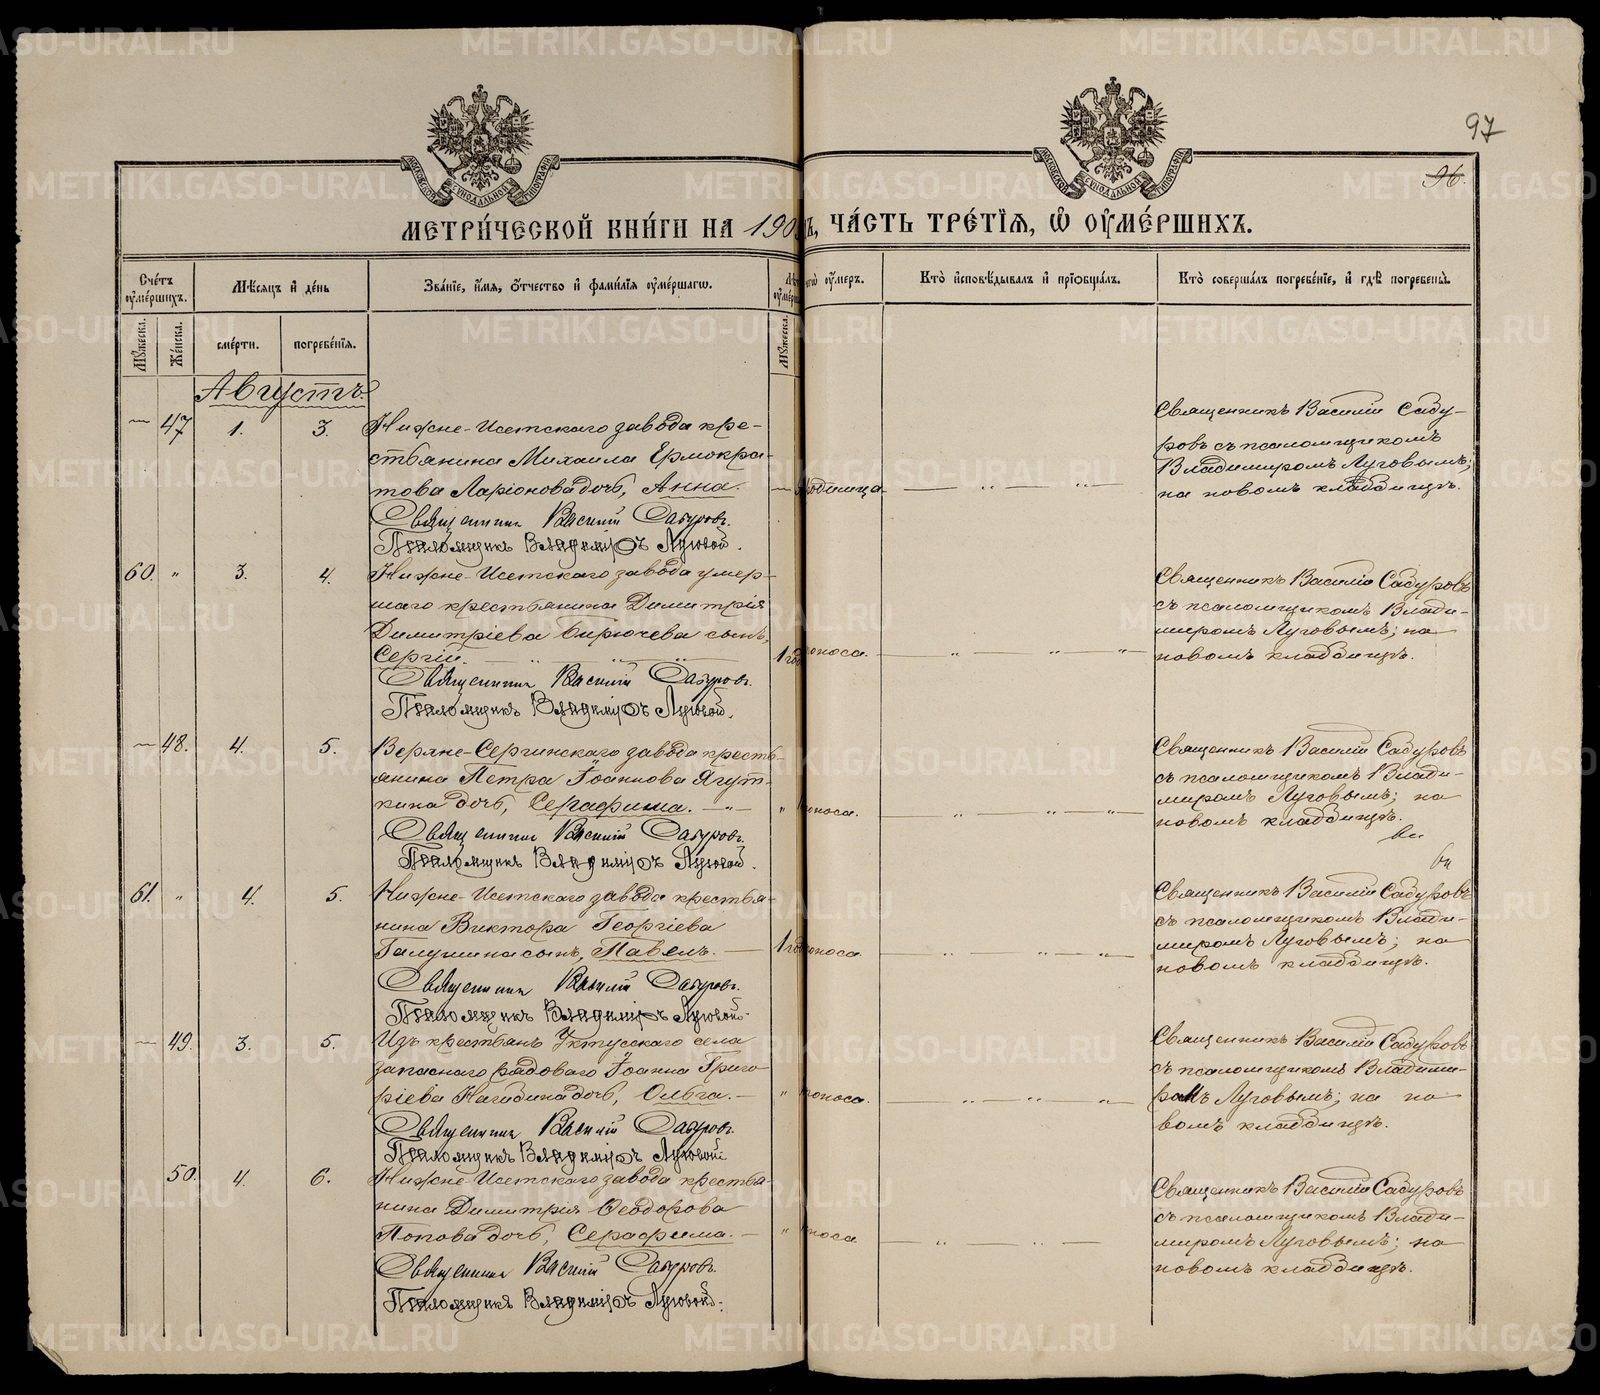 97
96.
МЕТРИ́ЧЕСКОЙ КНИ́ГИ НА 190
Ъ, ЧА́СТЬ ТРЕ́ТІѦ, Ѡ҆ ОУ҆МЕ́РШИХЪ.
Сче́тъ оу҆ме́ршихъ.
Мѣ́сяцъ и҆ де́нь
Зва́нїе, и҆́мя, ѻ҆́тчество и҆ фами́лїя оу҆ме́ршагѡ.
оу҆́меръ.
Кто̀ и҆сповѣ́дывалъ и҆ прїѻбща́лъ.
Кто̀ соверша́лъ погребе́нїе, и҆ гдѣ̀ погребены̀.
Мꙋ́жеска.
Же́нска.
сме́рти.
погребе́нїя.
Мꙋ́жеска.
Августъ.
— 47 1. 3.
Нижне-Исетскаго завода кре-
стьянина Михаила Ермокра-
това Ларіонова дочь, Анна.
Священникъ Василій Сабуровъ.
Псаломщикъ Владиміръ Луговой.
Священникъ Василій Сабу-
ровъ съ псаломщикомъ
Владимиромъ Луговымъ;
на новомъ кладбищѣ.
60. „ 3. 4.
Нижне-Исетскаго завода умер-
шаго крестьянина Димитрія
Димитріева Бирючева сынъ,
Сергій.
1 год
поноса.
Священникъ Василій Сабуровъ.
Псаломщикъ Владиміръ Луговой.
Священникъ Василій Сабуровъ
съ псаломщикомъ Влади-
миромъ Луговымъ; на
новомъ кладбищѣ.
— 48. 4. 5.
Верхне-Сергинскаго завода кресть-
янина Петра Іоаннова Ягут-
кина дочь, Серафима.
поноса.
Священникъ Василій Сабуровъ.
Псаломщикъ Владиміръ Луговой.
Священникъ Василій Сабуровъ
съ псаломщикомъ Влади-
миромъ Луговымъ; на
новомъ кладбищѣ.
61. „ 4. 5.
Нижне-Исетскаго завода крестья-
нина Виктора Георгіева
Галушина сынъ, Павелъ.
1 год
поноса.
Священникъ Василій Сабуровъ.
Псаломщикъ Владиміръ Луговой.
Священникъ Василій Сабуровъ
съ псаломщикомъ Влади-
миромъ Луговымъ; на
новомъ кладбищѣ.
— 49. 3. 5.
Изъ крестьянъ Уктусскаго села
запаснаго рядоваго Іоанна Григо-
ріева Нагидина дочь, Ольга.
поноса.
Священникъ Василій Сабуровъ.
Псаломщикъ Владиміръ Луговой
Священникъ Василій Сабуровъ
съ псаломщикомъ Владими-
ромъ Луговымъ; на но-
вомъ кладбищѣ.
50. 4. 6.
Нижне-Исетскаго завода крестья-
нина Димитрія Ѳеодорова
Попова дочь, Серафима.
поноса
Священникъ Василій Сабуровъ.
Псаломщикъ Владиміръ Луговой.
Священникъ Василій Сабуровъ
съ псаломщикомъ Влади-
миромъ Луговымъ; на
новомъ кладбищѣ.
METRIKI.GASO-URAL.RU